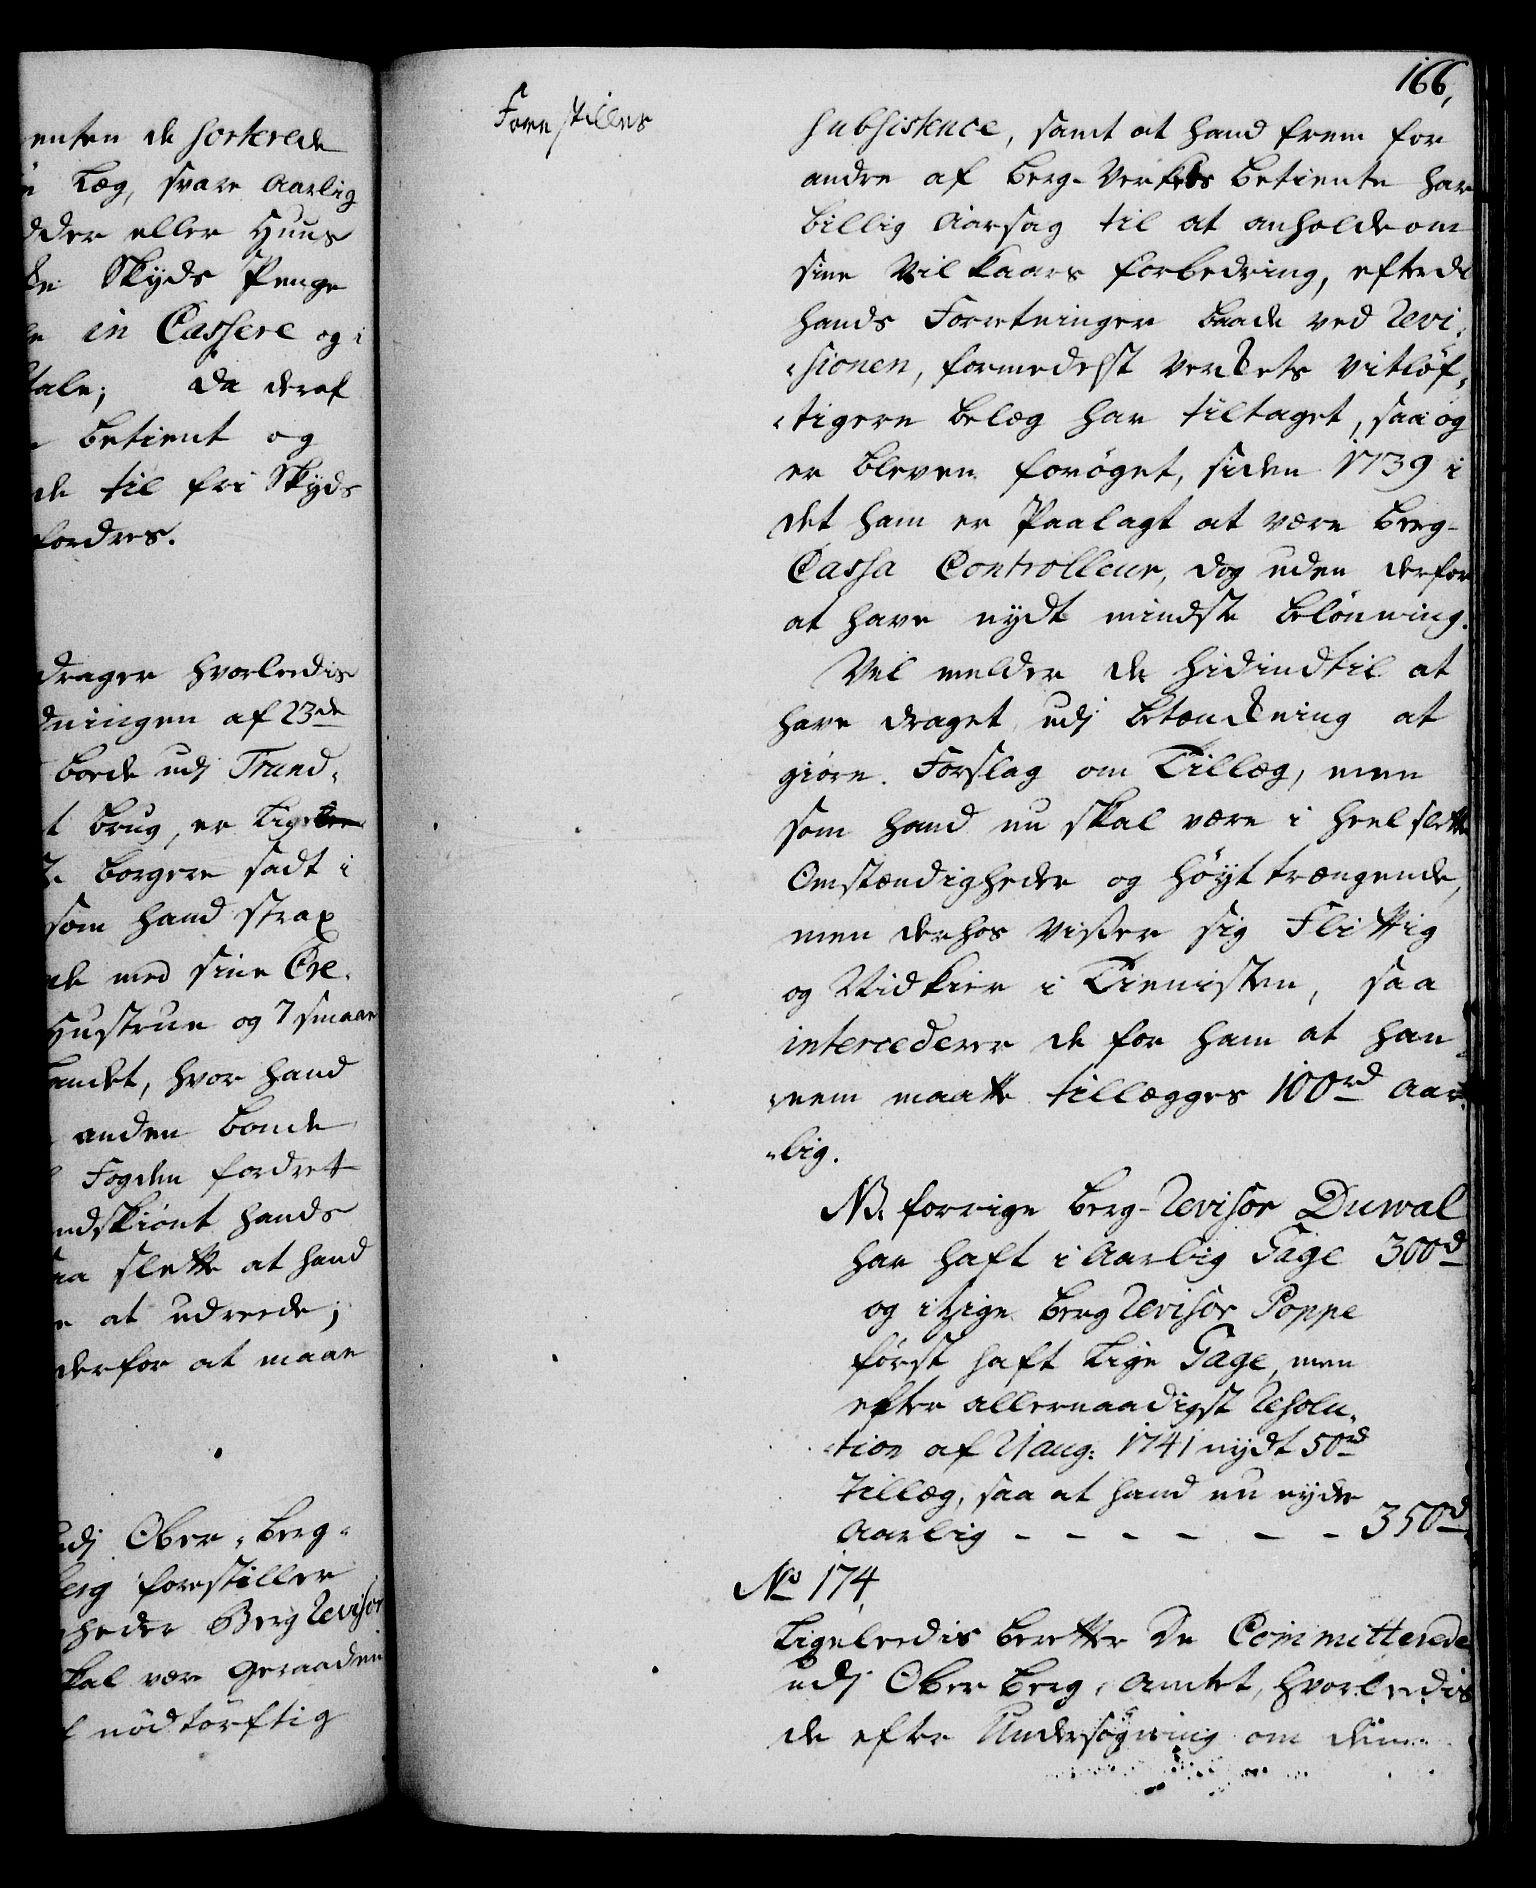 enten de sorterede
Læg, svare Aarlig
dder eller Huus
de Skyds Penge
in Cassere og i
tale; da deraf
betient og
de til fri Skyds
fordres.
drager hvorleedis
dningen af 23de
borde udj Trund-
t brug, er Lige
borgere sadt i
som hand strax
de med sine Cre-
Hustrue og 7 smaae
andet, hvor hand
anden bonde
Fogden fordret
endskiönt hands
aa slette at hand
e at udreede;
derfor at maae
udj Ober-Berg-
berg forestiller
gheder Berg Revisor
skal være Geraaden
l nödtörftig
Forestilles
166,
Subsistence, samt at hand frem for
andre af Berg-Verkets Betiente har
billig Aarsag til at anholde om
sine Vilkaars forbedring, efterdi
hands Forretninger baade ved Revi-
-sionen, formedelst Verkets vitløf-
-tigere belæg har tiltaget, saa og
er bleven forøget, siden 1739 i
det ham er Paalagt at være Berg-
Cassa Controlleur, dog uden derfor
at have nydt mindste belönning.
Vel melder de hidindtil at
have draget udj betænckning at
giøre Forslag om Tillæg, men
som hand nu skal være i heel slette
Omstændigheder og höyt trængende,
men derhos visser sig Flittig
og Nidkier i Tienisten, saa
intercederer de for ham at han-
-nem maatte tillægges 100rd Aar-
-lig.
NB. forrige Berg-Revisor Duwal
har haft i Aarlig Gage 300d
og itzige Berg Revisor Poppe
først haft Lige Gage, men
efter allernaadigst Resolu-
-tion af 21 aug: 1741 nydt 50rd
Tillæg, saa at hand nu nyder
Aarlig - - - - - - 350d.
No 174,
Ligeleedis beretter De Committerede
udj Ober Berg-Amtet, hvorleedis
de efter Undersøgning om